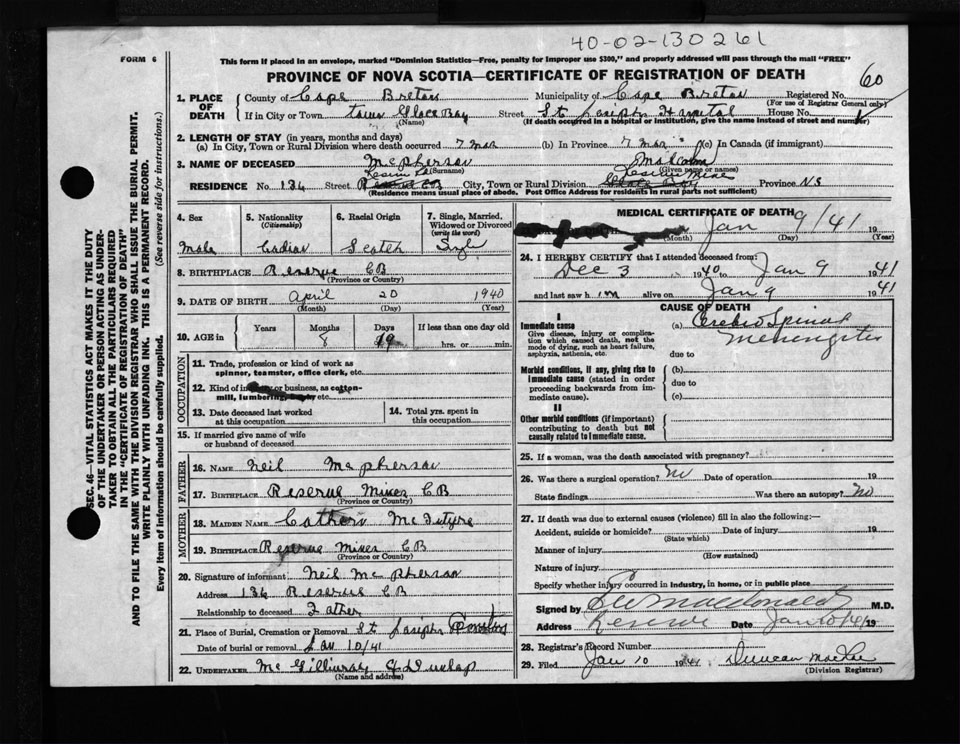 40-02-130261
FORM 6
This form if placed in an envelope, marked "Dominion Statistics—Free, penalty for improper use $300," and properly addressed will pass through the mail "FREE"
PROVINCE OF NOVA SCOTIA—CERTIFICATE OF REGISTRATION OF DEATH
60
1. PLACE OF DEATH
County of Cape Breton Municipality of Cape Breton Registered No.
(For use of Registrar General only)
If in City or Town town Glace Bay Street St Joseph Hospital House No.
(Name) (If death occurred in a hospital or institution, give the name instead of street and number)
2. LENGTH OF STAY (in years, months and days)
(a) In City, Town or Rural Division where death occurred 7 mos (b) In Province 7 mos (c) In Canada (if immigrant)
3. NAME OF DECEASED McPherson Malcolm
(Surname) (Given name or names)
RESIDENCE No. 136 Street City, Town or Rural Division Reserve Mines Province NS
(Residence means usual place of abode. Post Office Address for residents in rural parts not sufficient)
4. Sex
Male
5. Nationality
(Citizenship)
6. Racial Origin
Scotch
7. Single, Married, Widowed or Divorced
(write the word)
8. BIRTHPLACE Reserve CB
(Province or Country)
9. DATE OF BIRTH April 20 1940
(Month) (Day) (Year)
10. AGE in
Years Months Days If less than one day old
8 19 hrs. or min.
OCCUPATION
11. Trade, profession or kind of work as spinner, teamster, office clerk, etc.
12. Kind of or business, as cotton-mill, lumbering, etc.
13. Date deceased last worked at this occupation
14. Total yrs. spent in this occupation
15. If married give name of wife or husband of deceased
FATHER
16. NAME Neil McPherson
17. BIRTHPLACE Reserve Mines CB
(Province or Country)
MOTHER
18. MAIDEN NAME McIntyre
19. BIRTHPLACE Reserve Mines CB
(Province or Country)
20. Signature of informant Neil McPherson
Address 136 Reserve CB
Relationship to deceased Father
21. Place of Burial, Cremation or Removal St Joseph
Date of burial or removal Jan 10/41
22. UNDERTAKER McGillivray & Dunlap
(Name and address)
MEDICAL CERTIFICATE OF DEATH
Jan 9/41
(Month) (Day) (Year)
24. I HEREBY CERTIFY that I attended deceased from:
Dec 3 1940 to Jan 9 1941
and last saw him alive on Jan 9 1941
CAUSE OF DEATH
I
Immediate cause
Give disease, injury or complication which caused death, not the mode of dying, such as heart failure, asphyxia, asthenia, etc.
(a) Cerebro Spinal
Meningitis
due to
Morbid conditions, if any, giving rise to immediate cause (stated in order proceeding backwards from immediate cause).
(b)
due to
(c)
II
Other morbid conditions (if important) contributing to death but not causally related to immediate cause.
25. If a woman, was the death associated with pregnancy?
26. Was there a surgical operation? No Date of operation 19
State findings Was there an autopsy? No
27. If death was due to external causes (violence) fill in also the following:—
Accident, suicide or homicide? Date of injury 19
(State which)
Manner of injury
(How sustained)
Nature of injury
Specify whether injury occurred in industry, in home, or in public place
Signed by MacDonald M.D.
Address Reserve Date Jan 10/41 19
28. Registrar's Record Number
29. Filed Jan 10 1941 Duncan
(Division Registrar)
SEC. 46—VITAL STATISTICS ACT MAKES IT THE DUTY
OF THE UNDERTAKER OR PERSON ACTING AS UNDER-
TAKER TO OBTAIN ALL THE PARTICULARS REQUIRED
IN THE "CERTIFICATE OF REGISTRATION OF DEATH"
AND TO FILE THE SAME WITH THE DIVISION REGISTRAR WHO SHALL ISSUE THE BURIAL PERMIT.
WRITE PLAINLY WITH UNFADING INK. THIS IS A PERMANENT RECORD.
Every item of information should be carefully supplied. (See reverse side for instructions.)